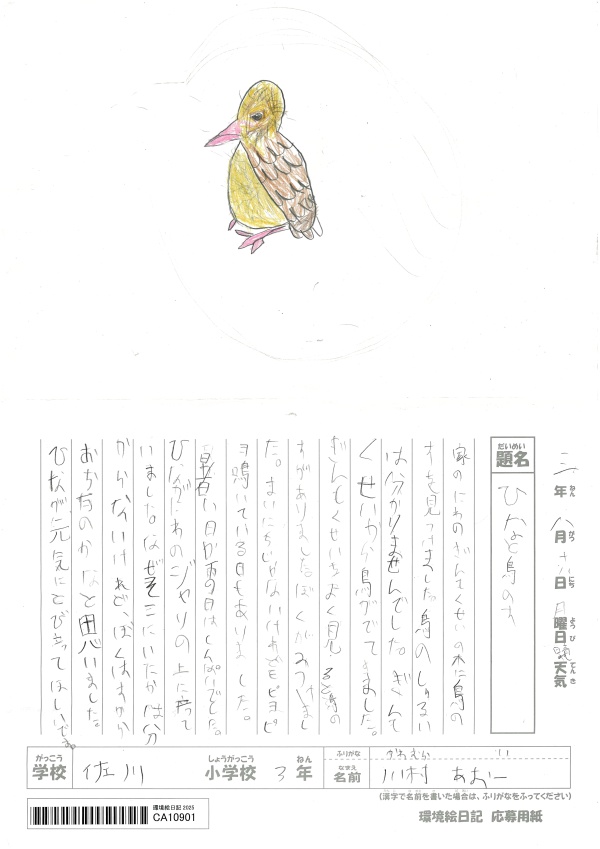 三年八月十八日月曜日晴天気
ねん がつ にち ようび てんき
だいめい
題名
ひなと鳥のす
家のにわのぎんもくせいの木に鳥の
すを見つけました。鳥のしゅるい
は分かりませんでした。ぎんも
くせいから鳥がでてきました。
ぎんもくせいをよく見ると鳥の
すがありました。ぼくがみつけまし
た。まいにちじゃないけれどピヨピ
ヨ鳴いている日もありました。
暑い日が雨の日はしんぱいでした。
ひながにわのジャリの上に立って
いました。なぜそこにいたかは分
からないけれど、ぼくはすから
おちたのかなと思いました。
ひなが元気にとび立ってほしいです。
がっこう しょうがっこう ねん ふりがな
学校 佐川 小学校 3年
なまえ
名前 川村 あおい
(漢字で名前を書いた場合は、ふりがなをふってください)
環境絵日記 2025
CA10901
環境絵日記 応募用紙